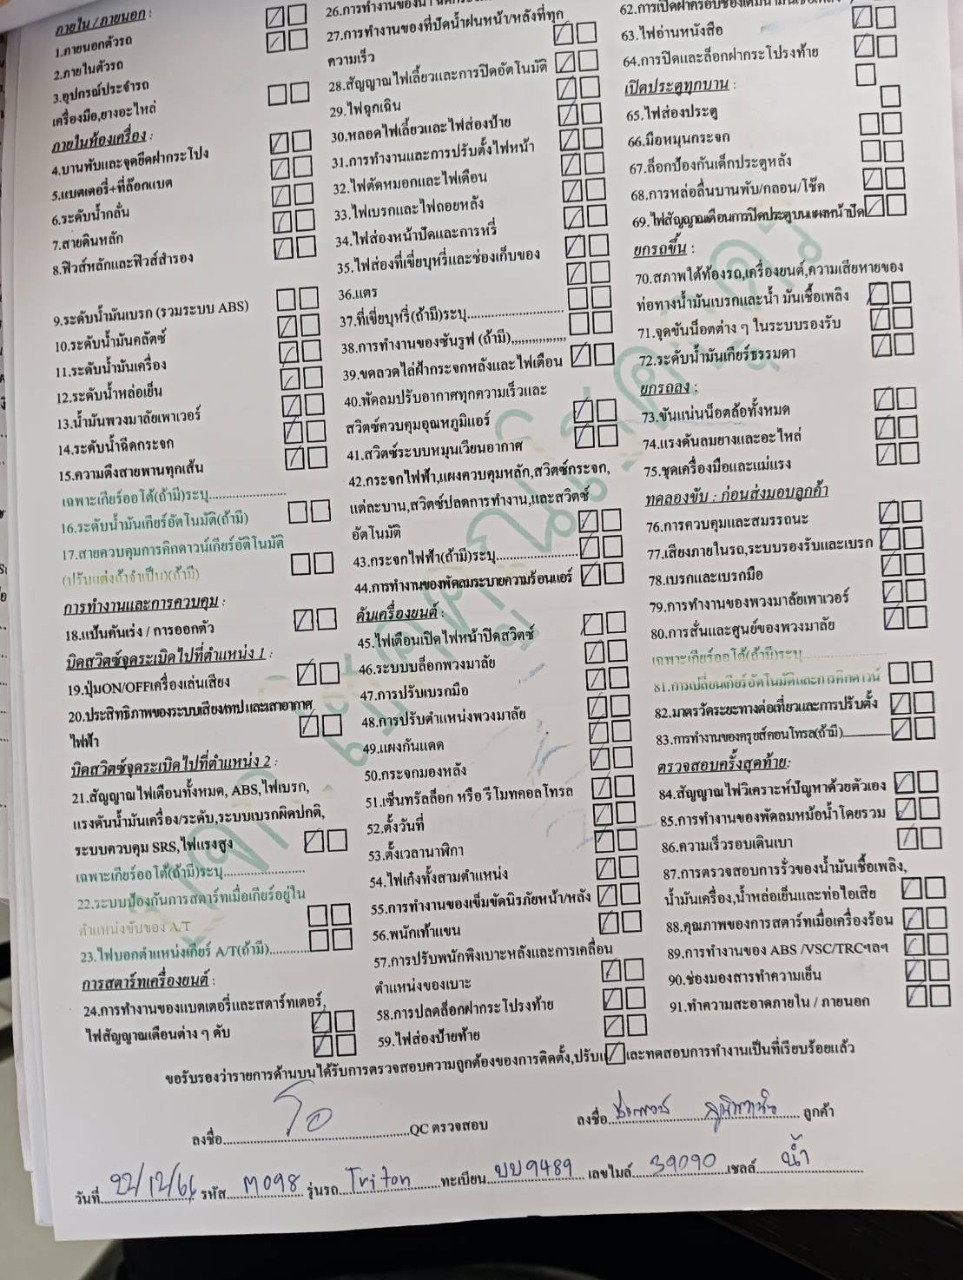 ภายใน / ภายนอก :
1.ภายนอกตัวรถ
2.ภายในตัวรถ
3.อุปกรณ์ประจำรถ
เครื่องมือ,ยางอะไหล่
ภายในห้องเครื่อง :
4.บานพับและจุดยึดฝากระโปง
5.แบตเตอรี่+ที่ล๊อกแบต
6.ระดับน้ำกลั่น
7.สายดินหลัก
8.ฟิวส์หลักและฟิวส์สำรอง
9.ระดับน้ำมันเบรก (รวมระบบ ABS)
10.ระดับน้ำมันคลัตช์
11.ระดับน้ำมันเครื่อง
12.ระดับน้ำหล่อเย็น
13.น้ำมันพวงมาลัยเพาเวอร์
14.ระดับน้ำฉีดกระจก
15.ความตึงสายพานทุกเส้น
เฉพาะเกียร์ออโต้(ถ้ามี)ระบุ......................
16.ระดับน้ำมันเกียร์อัตโนมัติ(ถ้ามี)
17.สายควบคุมการคิกดาวน์เกียร์อัติโนมัติ
(ปรับแต่งถ้าจำเป็น)(ถ้ามี)
การทำงานและการควบคุม :
18.แป้นคันเร่ง / การออกตัว
บิดสวิตซ์จุดระเบิดไปที่ตำแหน่ง 1 :
19.ปุ่มON/OFFเครื่องเล่นเสียง
20.ประสิทธิภาพของระบบเสียงเทป และเสาอากาศ
ไฟฟ้า
บิดสวิตซ์จุดระเบิดไปที่ตำแหน่ง 2 :
21.สัญญาณไฟเตือนทั้งหมด, ABS,ไฟเบรก,
แรงดันน้ำมันเครื่อง/ระดับ,ระบบเบรกผิดปกติ,
ระบบควบคุม SRS,ไฟแรงสูง
เฉพาะเกียร์ออโต้(ถ้ามี)ระบุ......................
22.ระบบป้องกันการสตาร์ทเมื่อเกียร์อยู่ใน
ตำแหน่งขับของ A/T
23.ไฟบอกตำแหน่งเกียร์ A/T(ถ้ามี)..........
การสตาร์ทเครื่องยนต์ :
24.การทำงานของแบตเตอรี่และสตาร์ทเตอร์,
ไฟสัญญาณเตือนต่าง ๆ ดับ
27.การทำงานของที่ปัดน้ำฝนหน้า/หลังที่ทุก
ความเร็ว
28.สัญญาณไฟเลี้ยวและการปิดอัตโนมัติ
29.ไฟฉุกเฉิน
30.หลอดไฟเลี้ยวและไฟส่องป้าย
31.การทำงานและการปรับตั้งไฟหน้า
32.ไฟตัดหมอกและไฟเตือน
33.ไฟเบรกและไฟถอยหลัง
34.ไฟส่องหน้าปัดและการหรี่
35.ไฟส่องที่เขี่ยบุหรี่และช่องเก็บของ
36.แตร
37.ที่เขี่ยบุหรี่(ถ้ามี)ระบุ.........................
38.การทำงานของซันรูฟ (ถ้ามี)...............
39.ขดลวดไล่ฝ้ากระจกหลังและไฟเตือน
40.พัดลมปรับอากาศทุกความเร็วและ
สวิตซ์ควบคุมอุณหภูมิแอร์
41.สวิตซ์ระบบหมุนเวียนอากาศ
42.กระจกไฟฟ้า,แผงควบคุมหลัก,สวิตซ์กระจก,
แต่ละบาน,สวิตซ์ปลดการทำงาน,และสวิตซ์
อัตโนมัติ
43.กระจกไฟฟ้า(ถ้ามี)ระบุ......................
44.การทำงานของพัดลมระบายความร้อนแอร์
ดับเครื่องยนต์ :
45.ไฟเตือนเปิดไฟหน้าปิดสวิตซ์
46.ระบบบล็อกพวงมาลัย
47.การปรับเบรกมือ
48.การปรับตำแหน่งพวงมาลัย
49.แผงกันแดด
50.กระจกมองหลัง
51.เซ็นทรัลล็อก หรือ รีโมทคอลโทรล
52.ตั้งวันที่
53.ตั้งเวลานาฬิกา
54.ไฟเก๋งทั้งสามตำแหน่ง
55.การทำงานของเข็มขัดนิรภัยหน้า/หลัง
56.พนักเท้าแขน
57.การปรับพนักพิงเบาะหลังและการเคลื่อน
ตำแหน่งของเบาะ
58.การปลดล็อกฝากระโปรงท้าย
59.ไฟส่องป้ายท้าย
63.ไฟอ่านหนังสือ
64.การปิดและล็อกฝากระโปรงท้าย
เปิดประตูทุกบาน :
65.ไฟส่องประตู
66.มือหมุนกระจก
67.ล็อกป้องกันเด็กประตูหลัง
68.การหล่อลื่นบานพับ/กลอน/โช๊ค
69.ไฟสัญญาณเตือนการปิดประตูบนแผงหน้าปัด
ยกรถขึ้น :
70.สภาพใต้ท้องรถ,เครื่องยนต์,ความเสียหายของ
ท่อทางน้ำมันเบรกและน้ำ มันเชื้อเพลิง
71.จุดขันน็อตต่าง ๆ ในระบบรองรับ
72.ระดับน้ำมันเกียร์ธรรมดา
ยกรถลง :
73.ขันแน่นน็อตล้อทั้งหมด
74.แรงดันลมยางและอะไหล่
75.ชุดเครื่องมือและแม่แรง
ทดลองขับ : ก่อนส่งมอบลูกค้า
76.การควบคุมและสมรรถนะ
77.เสียงภายในรถ,ระบบรองรับและเบรก
78.เบรกและเบรกมือ
79.การทำงานของพวงมาลัยเพาเวอร์
80.การสั่นและศูนย์ของพวงมาลัย
เฉพาะเกียร์ออโต้(ถ้ามี)ระบุ......................
81.การเปลี่ยนเกียร์อัตโนมัติและการคิกดาวน์
82.มาตรวัดระยะทางต่อเที่ยวและการปรับตั้ง
83.การทำงานของครุยส์คอนโทรล(ถ้ามี)..........
ตรวจสอบครั้งสุดท้าย:
84.สัญญาณไฟวิเคราะห์ปัญหาด้วยตัวเอง
85.การทำงานของพัดลมหม้อน้ำโดยรวม
86.ความเร็วรอบเดินเบา
87.การตรวจสอบการรั่วของน้ำมันเชื้อเพลิง,
น้ำมันเครื่อง,น้ำหล่อเย็นและท่อไอเสีย
88.คุณภาพของการสตาร์ทเมื่อเครื่องร้อน
89.การทำงานของ ABS /VSC/TRCฯลฯ
90.ช่องมองสารทำความเย็น
91.ทำความสะอาดภายใน / ภายนอก
ขอรับรองว่ารายการด้านบนได้รับการตรวจสอบความถูกต้องของการติดตั้ง,ปรับแต่งและทดสอบการทำงานเป็นที่เรียบร้อยแล้ว
ลงชื่อ........................................QC ตรวจสอบ
ลงชื่อ........................................ลูกค้า
วันที่ 22/12/66 รหัส M098 รุ่นรถ Triton ทะเบียน บบ9489 เลขไมล์ 39090 เซลล์ น้ำ